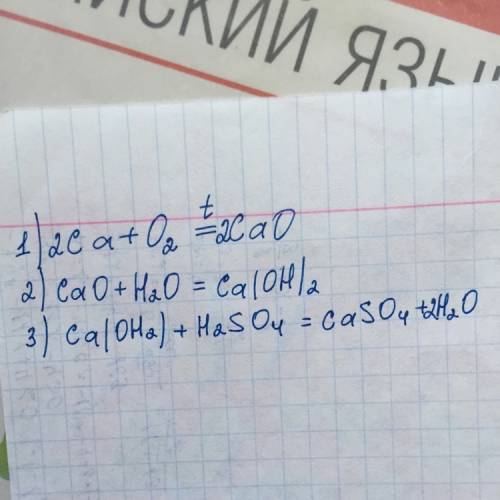 ИЙСКИЙ ЯЗЫК
t
1) 2Ca + O2 = 2CaO
2) CaO + H2O = Ca(OH)2
3) Ca(OH2) + H2SO4 = CaSO4 + 2H2O